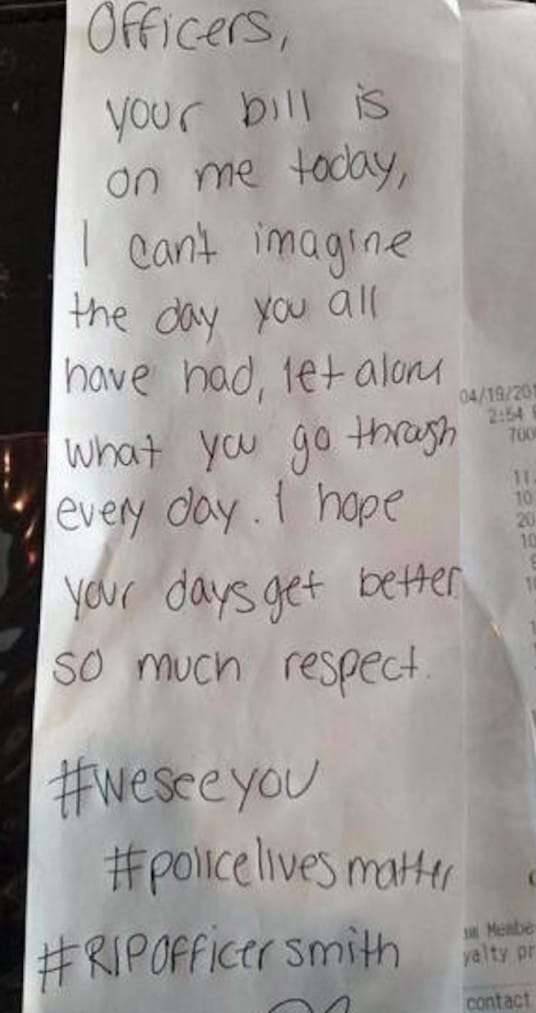 Officers,
your bill is
on me today,
I can't imagine
the day you all
have had, let alone
what you go through
every day. I hope
your days get better
so much respect.
#weseeyou
#policelivesmatter
#RIPOfficersmith
04/19/201
2:54
700
11.
10
20
10
yalty pr
contact